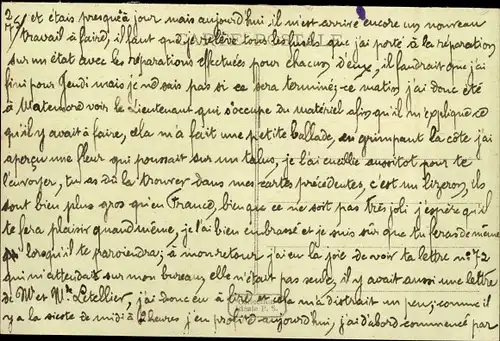 2/
75/ et étais presqu'à jour mais aujourd'hui il m'est arrivé encore un nouveau
travail à faire, il faut que je relève tous les fusils que j'ai porté à la réparation
sur un état avec les réparations effectuées pour chacun d'eux, il faudrait que j'ai
fini pour Jeudi mais je ne sais pas si ce sera terminé; ce matin j'ai donc été
à voir le Lieutenant qui s'occupe du matériel afin qu'il m'explique ce
qu'il y avait à faire, cela m'a fait une petite ballade, en grimpant la côte j'ai
aperçu une fleur qui poussait sur un talus, je l'ai cueillie aussitot pour te
l'envoyer, tu as dû la trouver dans mes cartes précédentes, c'est un lizeron, ils
sont bien plus gros qu'en France, bien que ce ne soit pas très joli j'espère qu'il
te fera plaisir quand même, je l'ai bien embrassé et je suis sûr que tu feras de même
lorsqu'il te parviendra; à mon retour j'ai eu la joie de voir ta lettre n° 72
qui m'attendait sur mon bureau, elle n'était pas seule, il y avait aussi une lettre
de Mr et Mme Letellier, j'ai donc eu à lire et cela m'a distrait un peu; comme il
y a la sieste de midi à 2 heures j'en profite aujourd'hui, j'ai d'abord commencé par